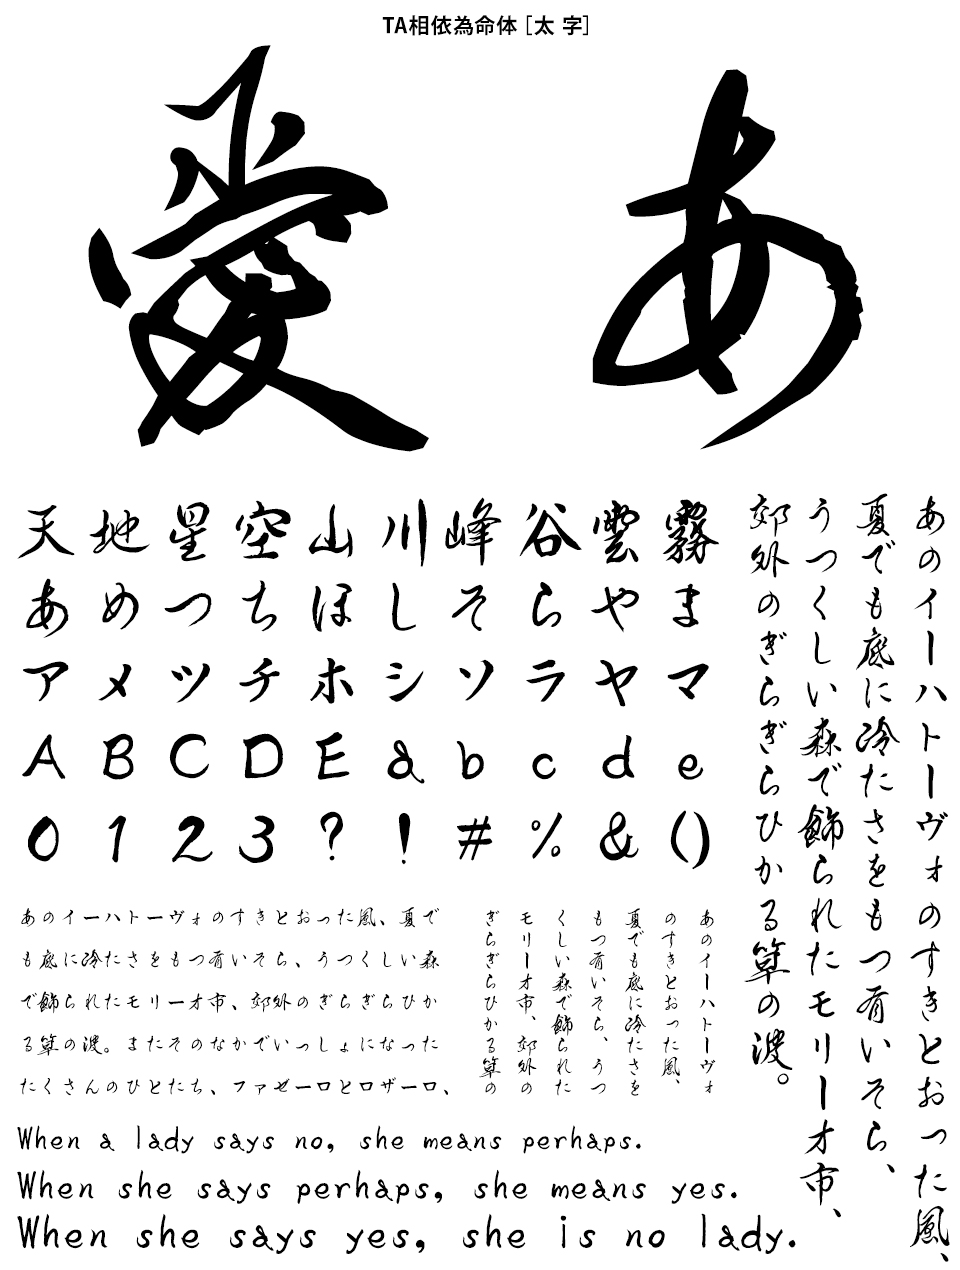 TA相依為命体［太 字］
愛 あ
天地星空山川峰谷雲霧
あめつちほしそらやま
アメツチホシソラヤマ
ABCDEabcde
0123?!#%&()
あのイーハトーヴォのすきとおった風、
夏でも底に冷たさをもつ青いそら、
うつくしい森で飾られたモリーオ市、
郊外のぎらぎらひかる草の波。
あのイーハトーヴォのすきとおった風、夏で
も底に冷たさをもつ青いそら、うつくしい森
で飾られたモリーオ市、郊外のぎらぎらひか
る草の波。またそのなかでいっしょになった
たくさんのひとたち、ファゼーロとロザーロ、
あのイーハトーヴォ
のすきとおった風、
夏でも底に冷たさを
もつ青いそら、うつ
くしい森で飾られた
モリーオ市、郊外の
ぎらぎらひかる草の
When a lady says no, she means perhaps.
When she says perhaps, she means yes.
When she says yes, she is no lady.